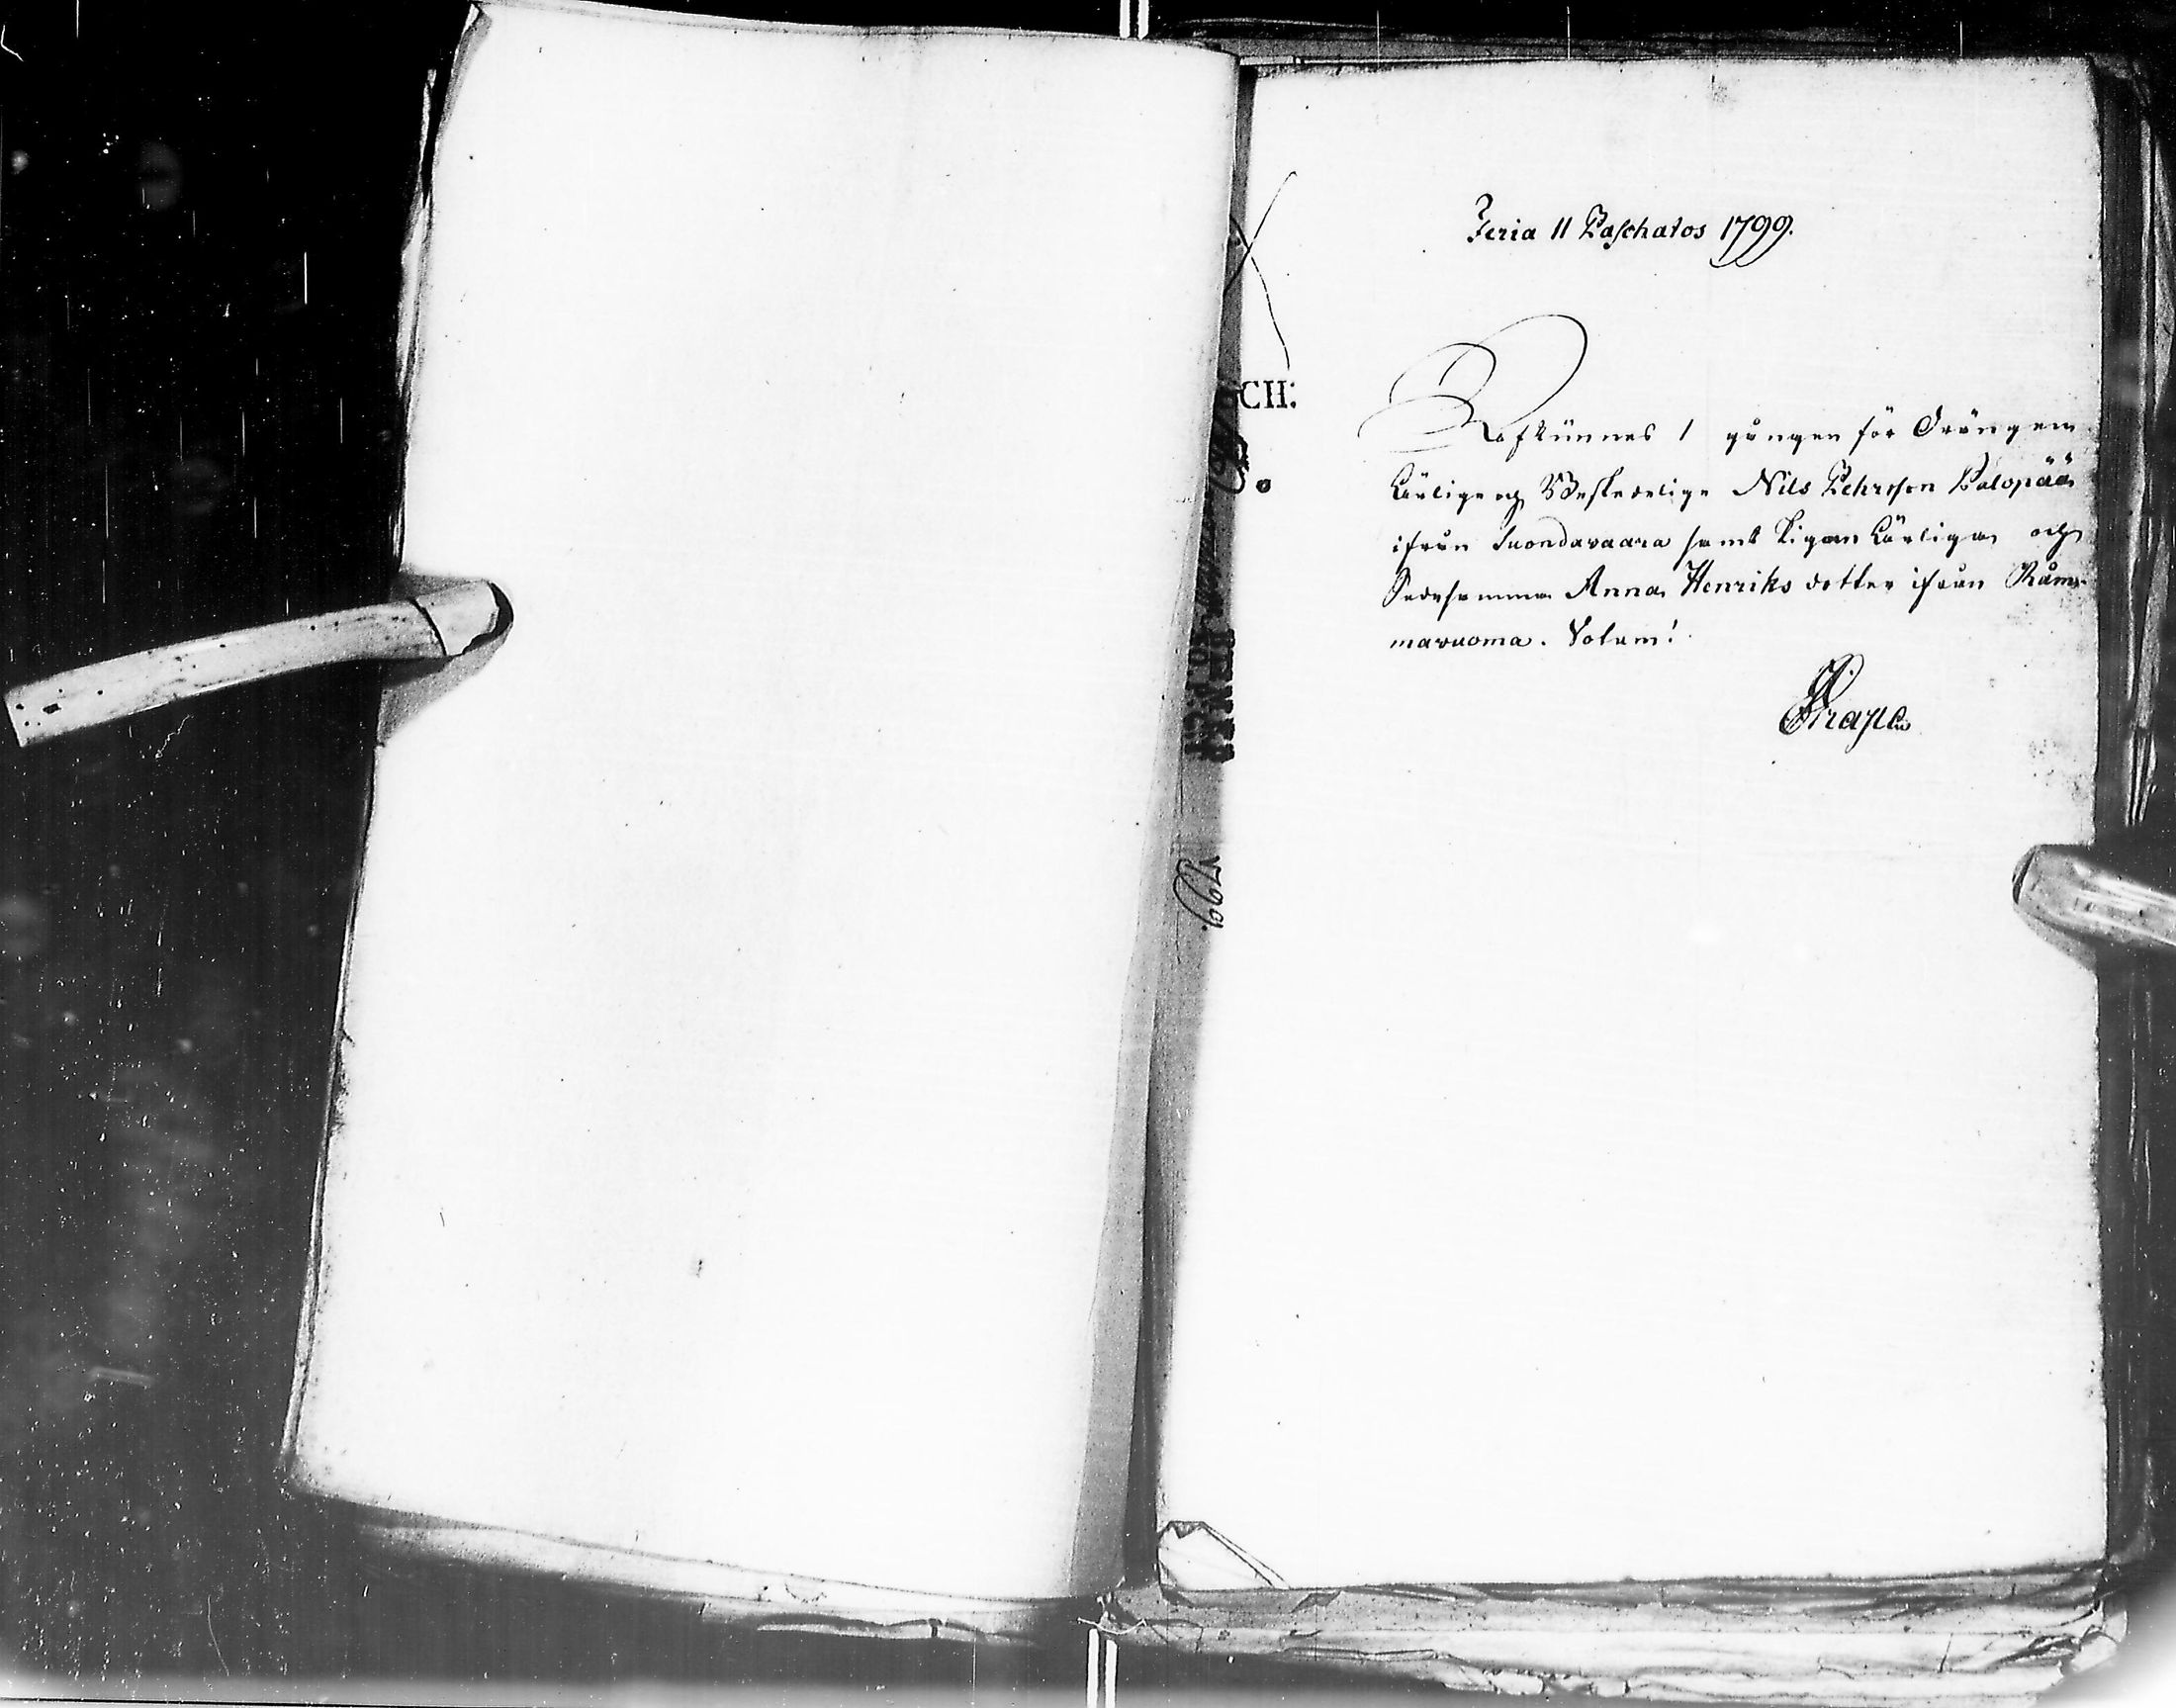 Feria II Paschatos 1799.
CH:
Lafkünnes 1 gången för Drängen
Ärlige och Beskedelige Nils Pehrsson Palopää
ifrån Suondavaara samt Pigan Ärliga och
Sedesamma Anna Henriks dotter ifrån Råm-
mavuoma. Solum!
1799.